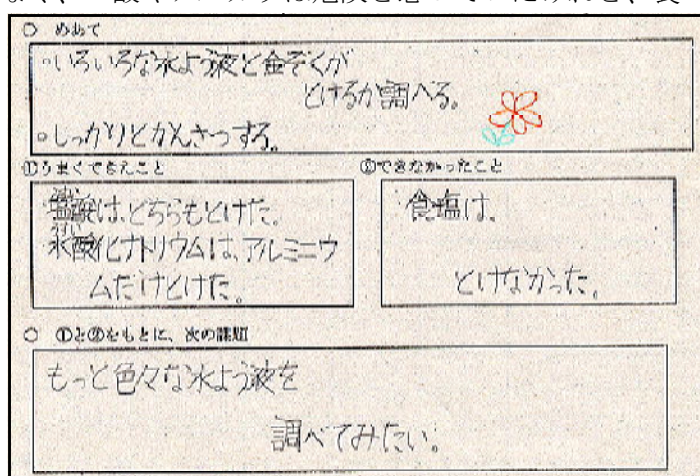 ○ めあて
・いろいろな水よう液と金ぞくが
とけるか調べる。
・しっかりとかんさつする。
①うまくできたこと
塩酸は、どちらもとけた。
水酸化ナトリウムは、アルミニウ
ムだけとけた。
②できなかったこと
食塩は、
とけなかった。
○ ①と②をもとに、次の課題
もっと色々な水よう液を
調べてみたい。